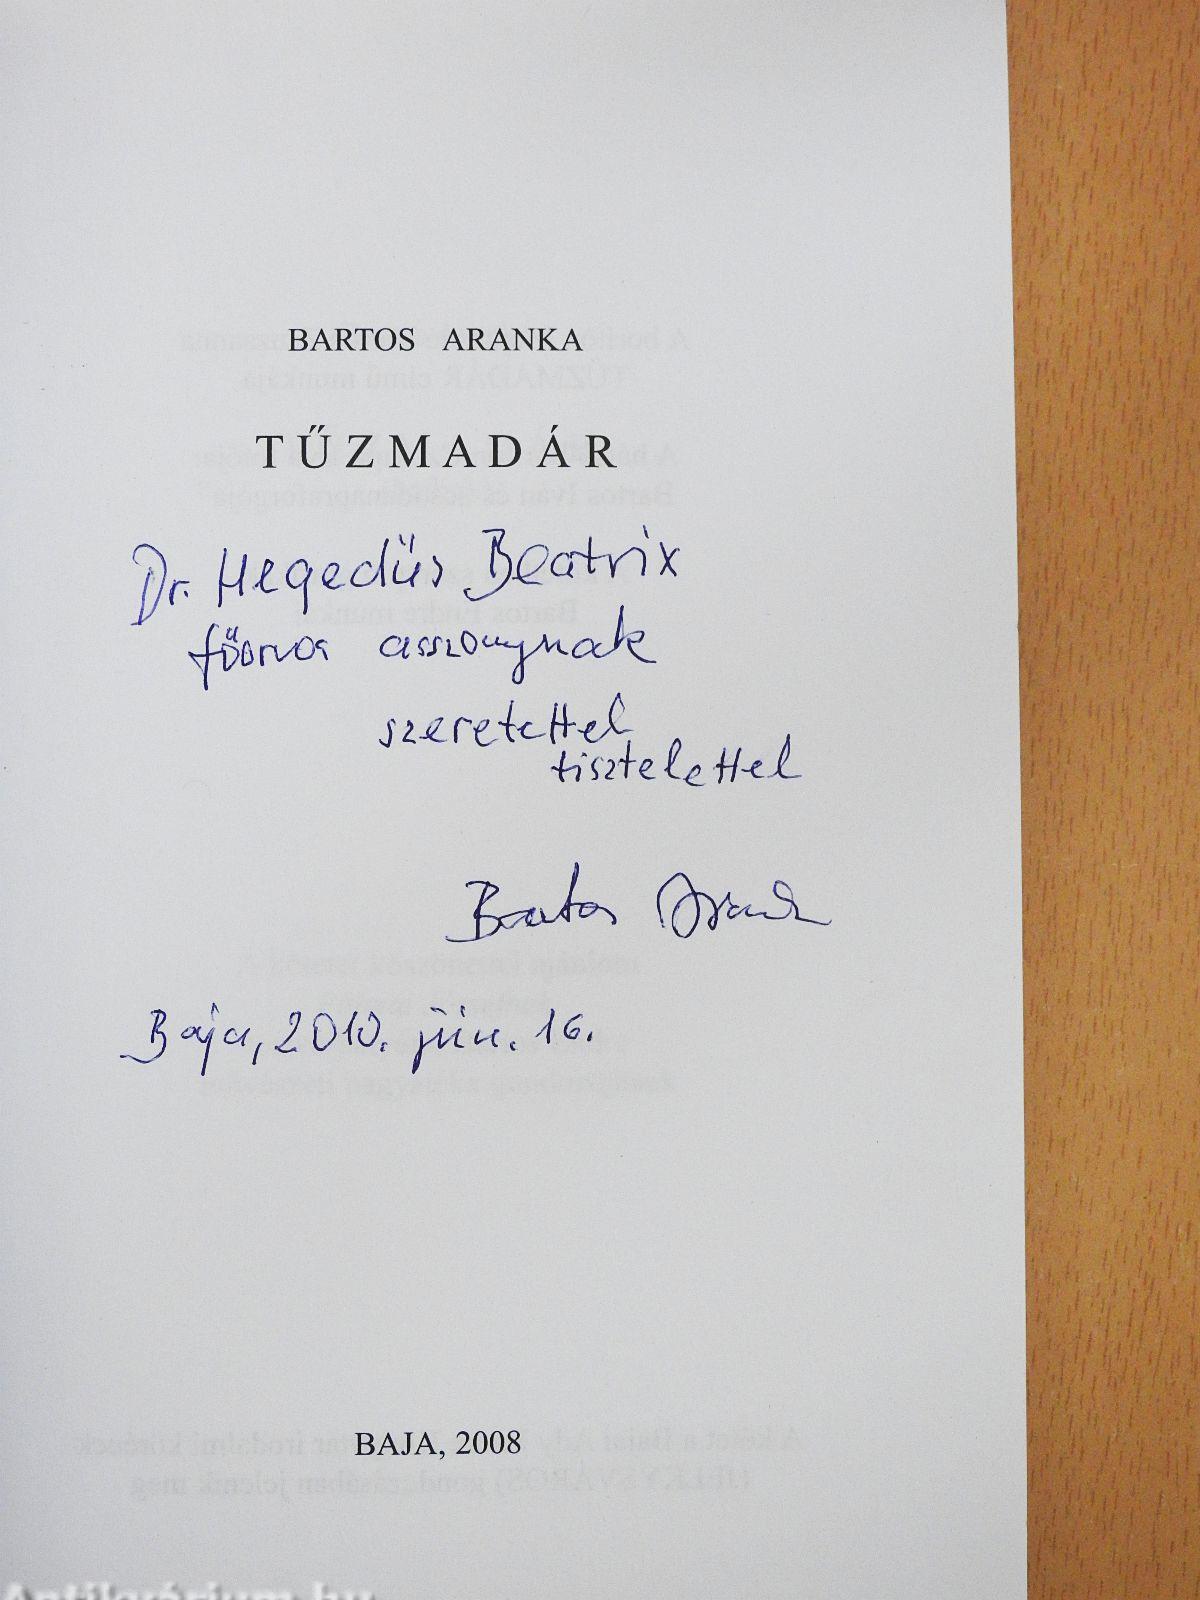 BARTOS ARANKA
TŰZMADÁR
Dr. Hegedüs Beatrix
főorvos asszonynak
szeretettel
tisztelettel
Bartos Aranka
Baja, 2010. jún. 16.
BAJA, 2008
Antikvárium.hu